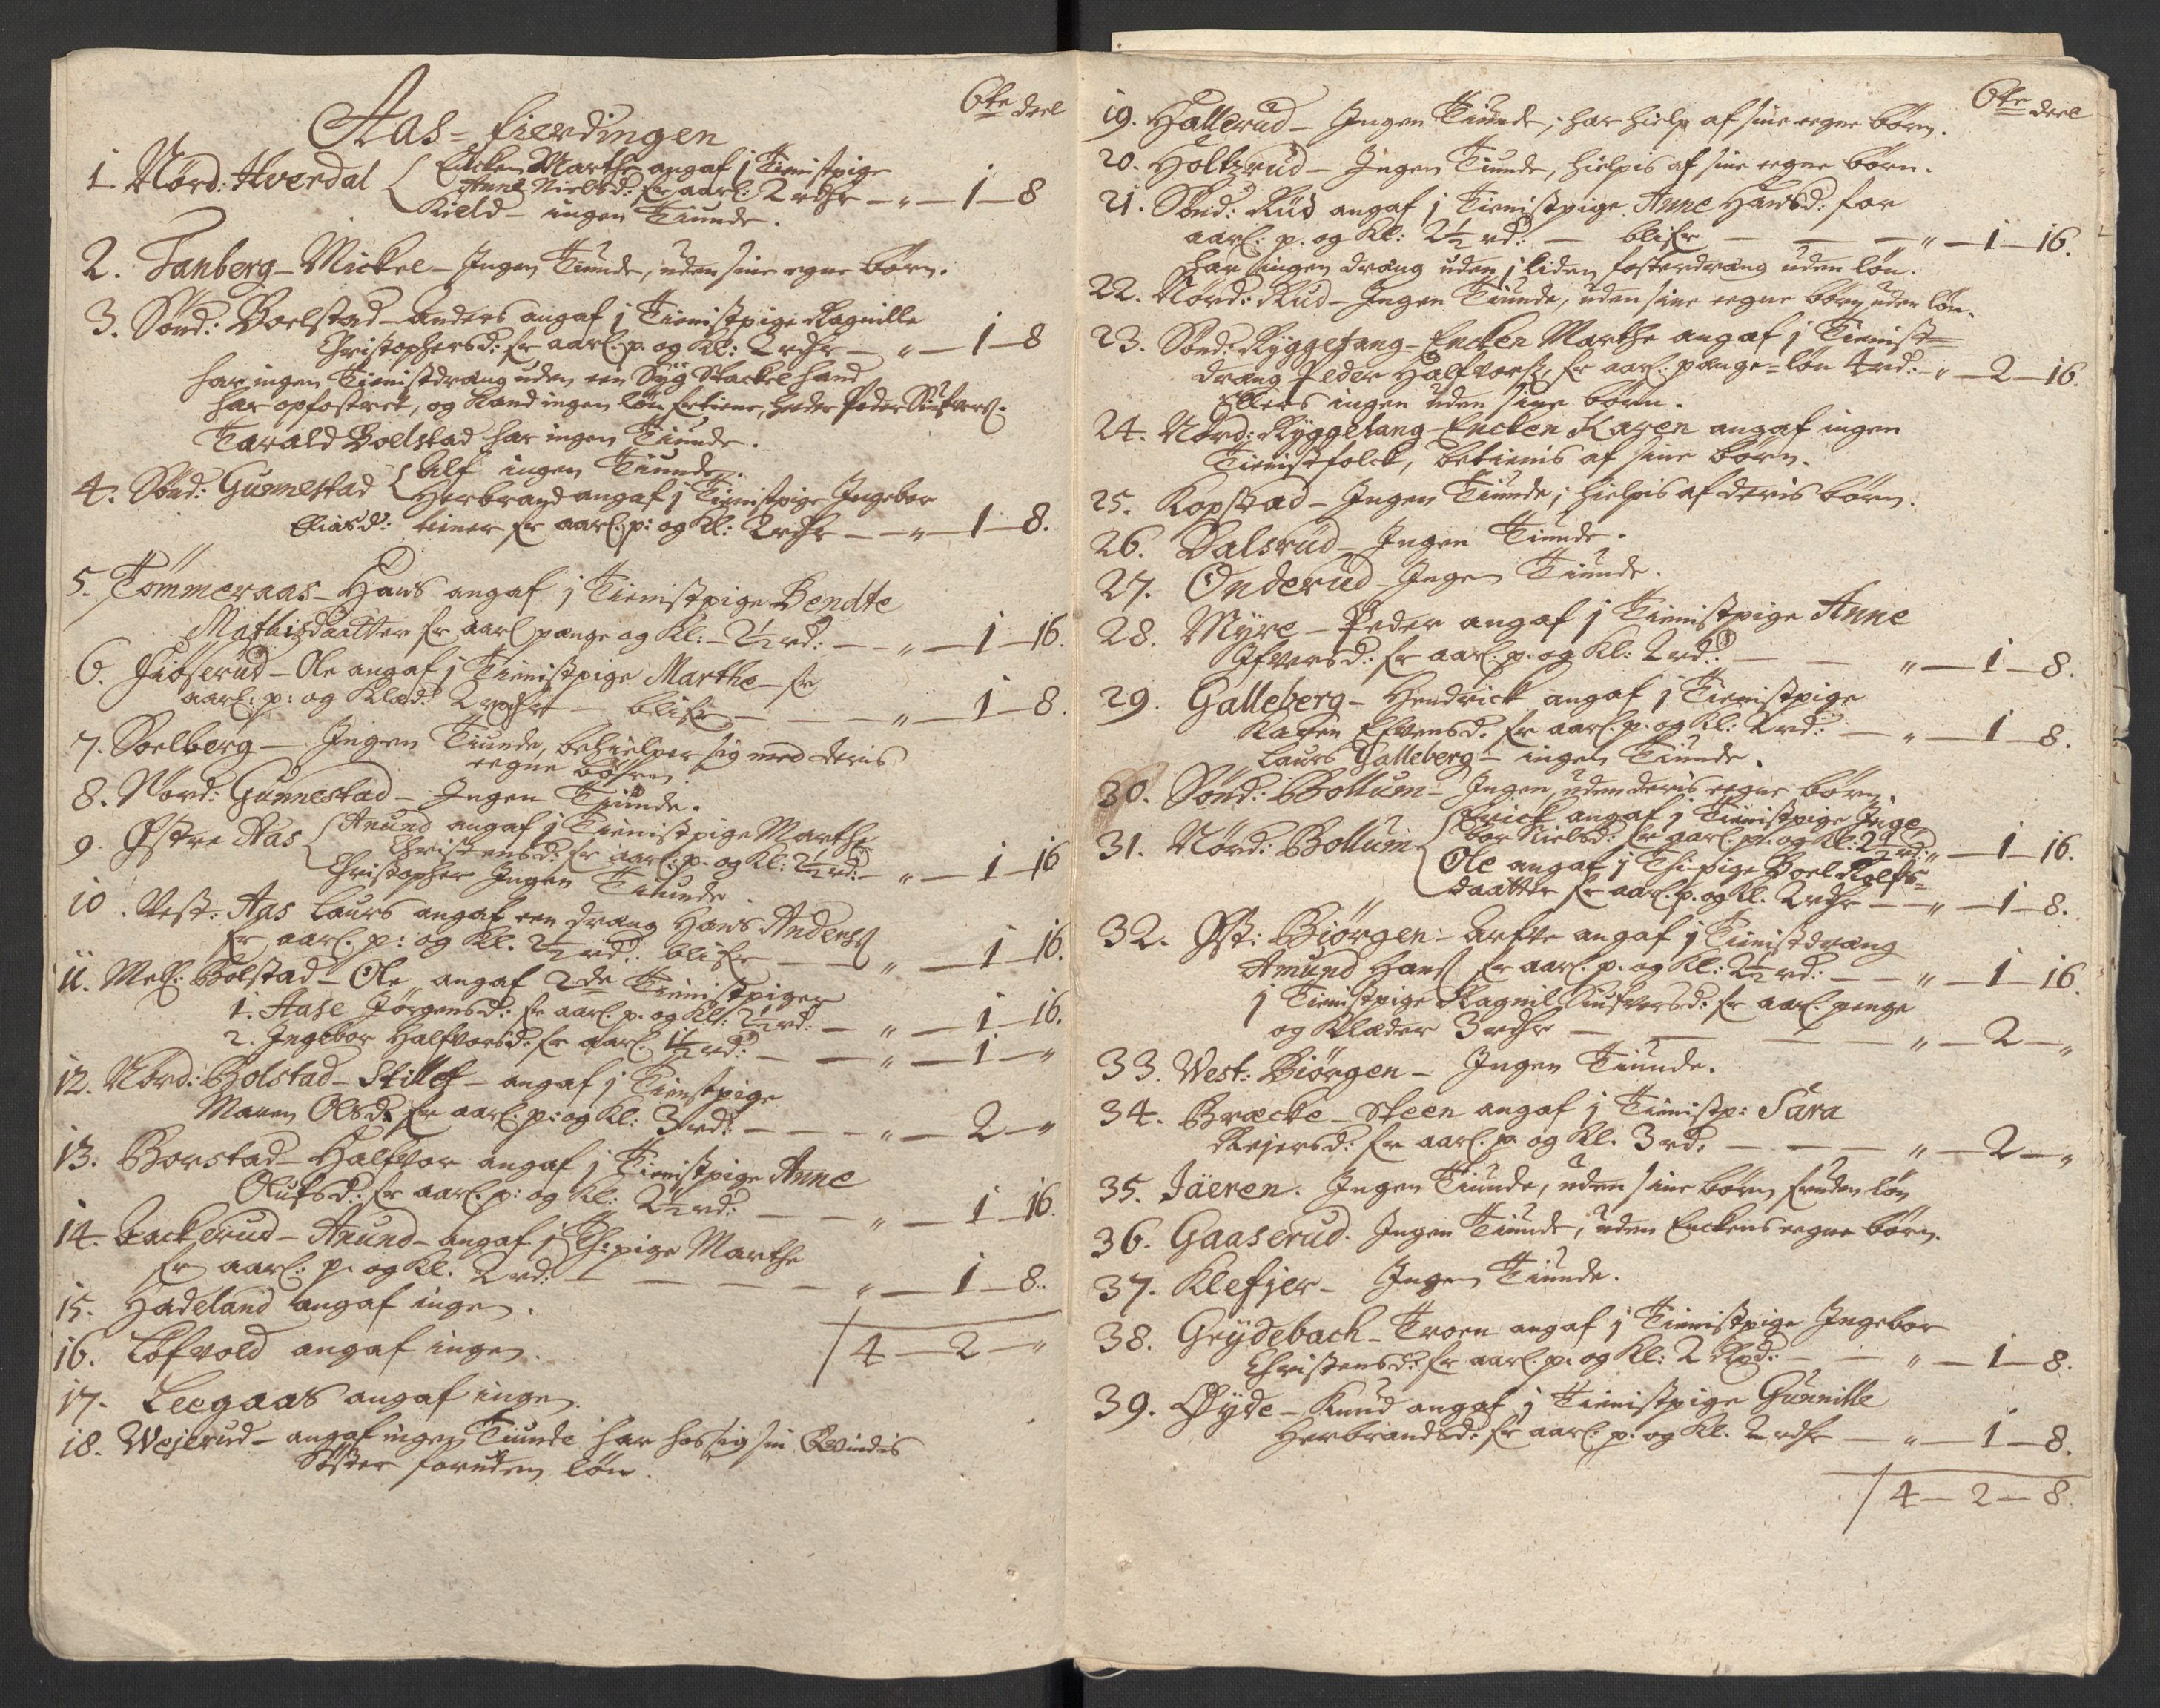 6te deel
Aas-fierdingen
1. Nørd: Hverdal { Encken Marthe angaf 1 Tienistpige
Anne Nielsd: fr aarl: 2 rdhr — " — 1 — 8
Kield — ingen Tiunde.
2. Tanberg — Mickel — Ingen Tiunde, uden sine egne børn.
3. Sønd: Boelstad — Anders angaf 1 Tienistpige Ragnille
Christophersd: fr aarl: p. og Kl: 2 rdhr — " — 1 — 8
har ingen Tienistdræng uden een Syg Stackel hand
har opfostret, og kand ingen løn fortiene, heder Peder
Tarald Boelstad har ingen Tiunde.
4. Sønd: Gunnestad { Alf ingen Tiunde.
Herbrand angaf 1 Tienistpige Ingebor
Eliasd: tiener fr aarl: p: og Kl: 2 rdhr — — " — 1 — 8.
5. Tømmeraas — Hans angaf 1 Tienistpige Bendte
Mathisdaatter fr aarl penge og Kl: — 2½ rd: — — " — 1 — 16.
6. Fiøserud — Ole angaf 1 Tienistpige Marthe — fr
aarl: p: og Klæd: 2 rdhr — blifr — — — " — 1 — 8.
7. Soelberg — Ingen Tiunde, behielper sig med deris
eegne børn.
8. Nord: Gunnestad — Ingen Tiunde.
9. Østre Aas { Anund angaf 1 Tienistpige Marthe
Christensd: fr aarl: p. og Kl: 2½ rd: — " — 1 — 16
Christopher Ingen Tiunde.
10. Vest: Aas Laurs angaf een dræng Hans Anderss
fr aarl: p: og Kl. 2½ rd: blifr — — " — 1 — 16.
11. Mell: Bolstad — Ole angaf 2de Tienistpiger
1. Aase Jørgensd: fr aarl: p. og Kl: 2½ rd: — " — 1 — 16.
2. Ingebor Halfvorsd: fr aarl. 1½ rd: — — " — 1 — "
12. Nørd: Bolstad — Stillef — angaf 1 Tienistpige
Maren Olsd: fr aarl: p: og Kl: 3 rd: — — — " — 2 — "
13. Borstad — Halfvor angaf 1 Tienistpige Anne
Olufsd: fr aarl: p: og Kl: 2½ rd: — — " — 1 — 16.
14. Backerud — Anund — angaf 1 Th: pige Marthe
fr aarl: p. og Kl. 2 rd: — — — — " — 1 — 8.
15. Hadeland angaf ingen.
16. Løfvold angaf ingen. / 4 — 2 — "
17. Leegaas angaf ingen.
18. Wejerud — angaf ingen Tiunde har hos sig sin Qvindis
Søster foruden løn.
6te deel
19. Hallerud — Ingen Tiunde, har hielp af sine eegne børn.
20. Holtzrud — Ingen Tiunde, hielpis af sine eegne børn.
21. Sønd: Rud angaf 1 Tienistpige Anne Hansd: for
aarl: p. og Kl: 2½ rd: — blifr — — — " — 1 — 16.
har ingen dræng uden 1 liden fosterdræng uden løn.
22. Nørd: Rud — Ingen Tiunde, uden sine eegne børn uden løn.
23. Sønd: Ryggetang — Encken Marthe angaf 1 Tienist=
dræng Peder Halfvorss, fr aarl: penge=løn 4 rd: — " — 2 — 16.
Ellers ingen uden sine børn.
24. Nørd: Ryggetang — Encken Karen angaf ingen
Tienistfolck, betienis af sine børn.
25. Kopstad — Ingen Tiunde, hielpis af deris børn.
26. Dalsrud — Ingen Tiunde.
27. Onderud — Ingen Tiunde.
28. Myre — Peder angaf 1 Tienistpige Anne
Ifversd: fr aarl: p. og Kl: 2 rd: — — " — 1 — 8.
29. Galleberg — Hendrick angaf 1 Tienistpige
Karen Efvensd: fr aarl: p. og Kl: 2 rd: — " — 1 — 8.
Laurs Galleberg — ingen Tiunde.
30. Sønd: Bollum — Ingen, uden deris eegne børn.
31. Nørd: Bollum { Erick angaf 1 Tienistpige Inge
bor Nielsd: fr aarl: p. og Kl: 2½ rd: " — 1 — 16.
Ole angaf 1 Th: pige Boel Rolfs=
daatter fr aarl: p. og Kl. 2 rdhr — — " — 1 — 8.
32. Øst: Biørgen — Arfve angaf 1 Tienistdræng
Amund Hanss fr aarl: p. og Kl: 2½ rd: — — " — 1 — 16.
1 Tienistpige Ragnil fr aarl: penge
og Klæder 3 rdhr — — — — " — 2 — "
33. West: Biørgen — Ingen Tiunde.
34. Bræcke — Steen angaf 1 Tienistp: Sara
Reiersd: fr aarl: p. og Kl. 3 rd: — — — " — 2 — "
35. Jäeren. Ingen Tiunde, uden sine børn foruden løn
36. Gaaserud. Ingen Tiunde, uden Enckens eegne børn.
37. Klefjer — Ingen Tiunde.
38. Grydebach — Troen angaf 1 Tienistpige Ingebor
Christensd: fr aarl: p. og Kl: 2 Rd: — — " — 1 — 8.
39. Øyde — Knud angaf 1 Tienistpige Gunnille
Herbrandsd: fr aarl: p. og Kl. 2 rdhr — " — 1 — 8.
/ 4 — 2 — 8.